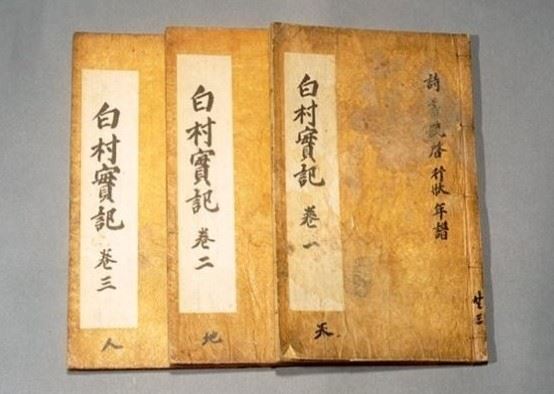 詩 啓 行狀 年譜
白村實記 卷一
天
白村實記 卷二
地
白村實記 卷三
人